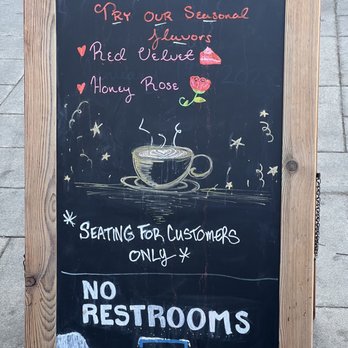 Try Our Seasonal
flavors
Red Velvet
Honey Rose
*SEATING FOR CUSTOMERS
ONLY*
NO
RESTROOMS